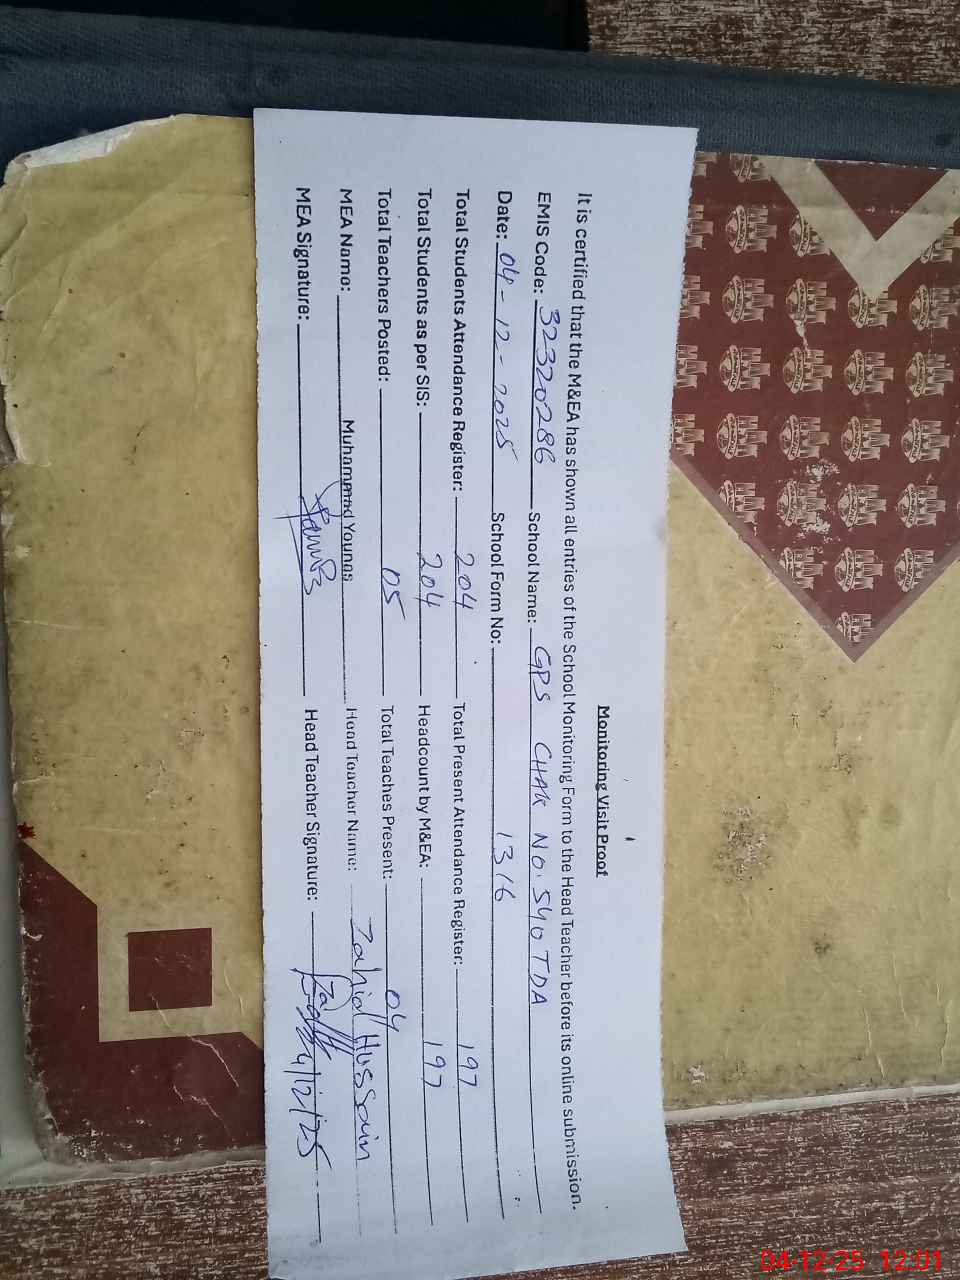 Monitoring Visit Proof
It is certified that the M&EA has shown all entries of the School Monitoring Form to the Head Teacher before its online submission.
EMIS Code: 32320286 School Name: GPS CHAK NO. 540 TDA
Date: 04-12-2025 School Form No: 1316
Total Students Attendance Register: 204 Total Present Attendance Register: 197
Total Students as per SIS: 204 Headcount by M&EA: 197
Total Teachers Posted: 05 Total Teaches Present: 04
MEA Name: Muhammad Younas Head Teacher Name: Zahid Hussain
MEA Signature: Head Teacher Signature: 4/12/25
04-12-25 12:01